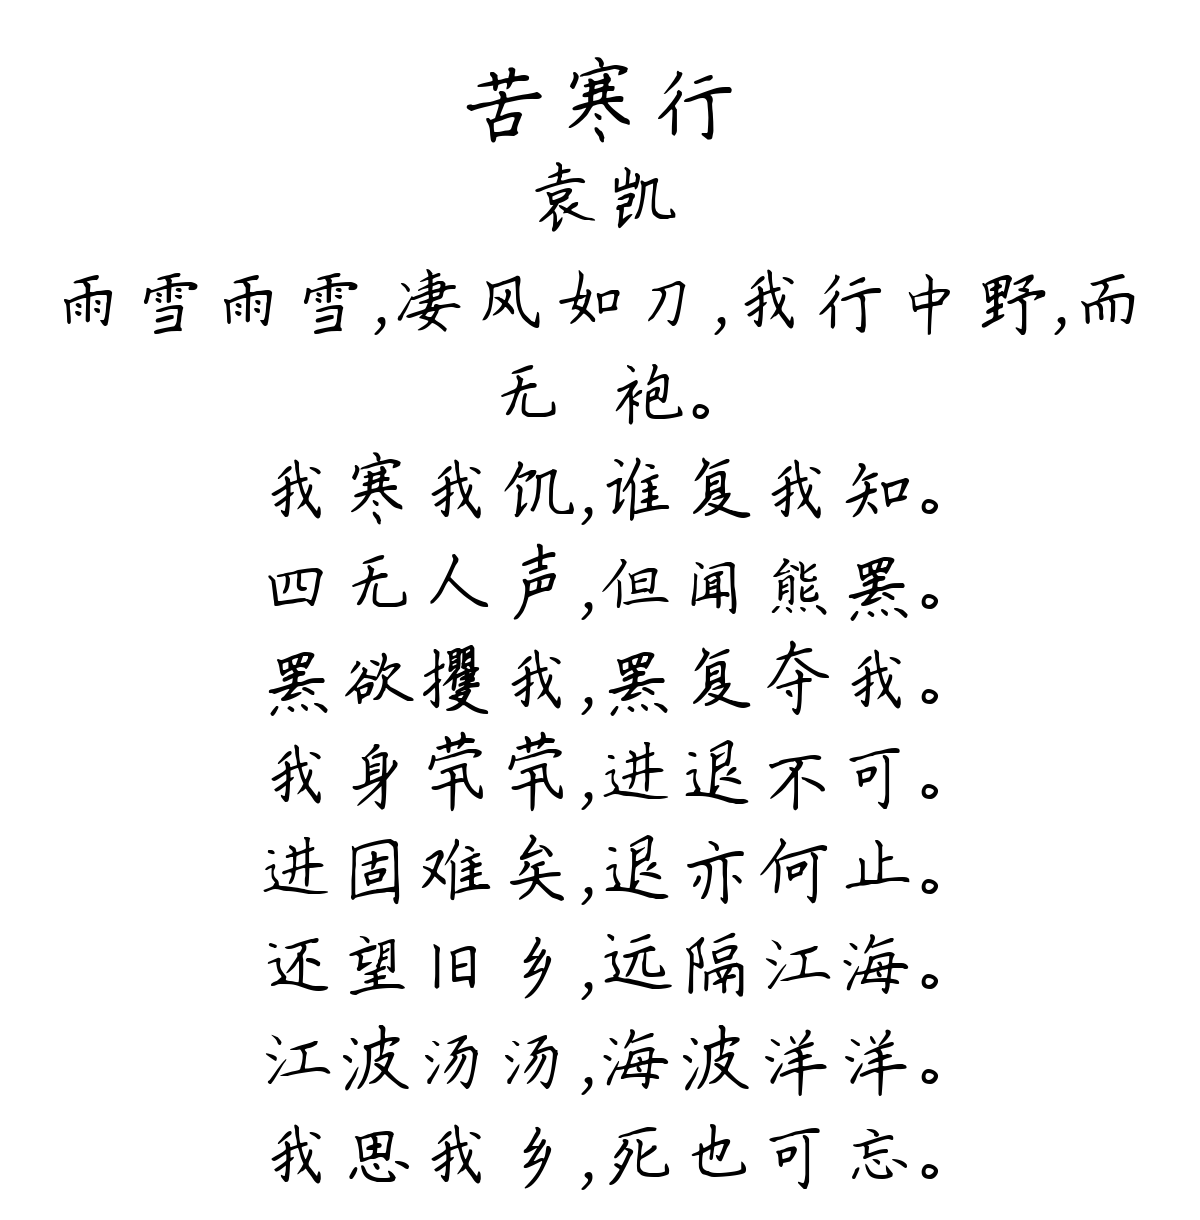 苦寒行
袁凯
雨雪雨雪,凄风如刀,我行中野,而
无 袍。
我寒我饥,谁复我知。
四无人声,但闻熊罴。
罴欲攫我,罴复夺我。
我身茕茕,进退不可。
进固难矣,退亦何止。
还望旧乡,远隔江海。
江波汤汤,海波洋洋。
我思我乡,死也可忘。